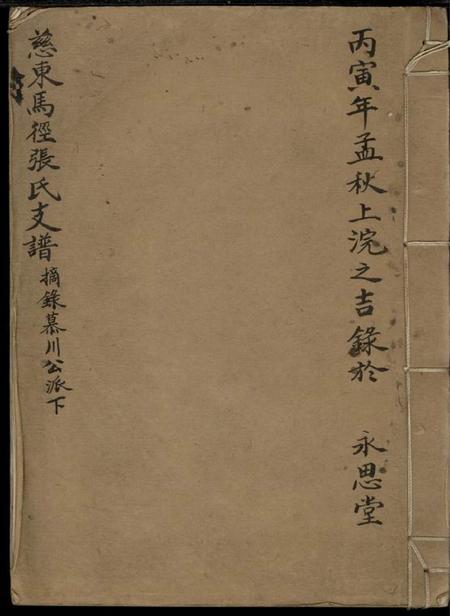 丙寅年孟秋上浣之吉錄於 永思堂
慈東馬徑張氏支譜 摘錄慕川公派下